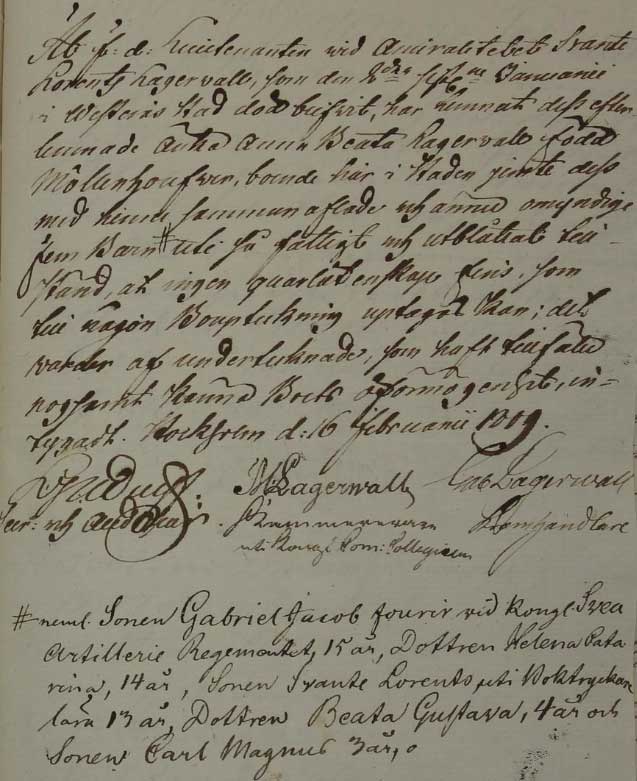 At f: d: Lieutenanten wid Amiralitetet Svante
Lorents Lagerwall, som den Januarii
i Westerås Stad död blifvit, har lemnat dess efter
lemnade Änka Anna Beata Lagerwall född
Möllenhoufwer, boende här i Staden jemte dess
med henne sammanaflade och ännu omyndige
fem Barn # uti så fattigt och utblåttat till-
stånd, at ingen quarlåtenskap fins, som
till någon Bouptekning uptagas kan; det
warder af undertecknade, som haft tillfälle
nogsamt känna Boets oförmögenhet, in-
tygadt. Stockholm d: 16 Februarii 1809.
M Lagerwall Gab Lagerwall
och Kammererare Kramhandlare
uti Kongl Com: Collegium
# neml. Sonen Gabriel Jacob fourir vid Kongl. Svea
Artillerie Regementet, 15 år, Dottren Helena Cata
rina, 14 år, Sonen Svante Lorents, uti Boktryckare
lära 13 år, Dottren Beata Gustava, 4 år och
Sonen Carl Magnus 3 år,